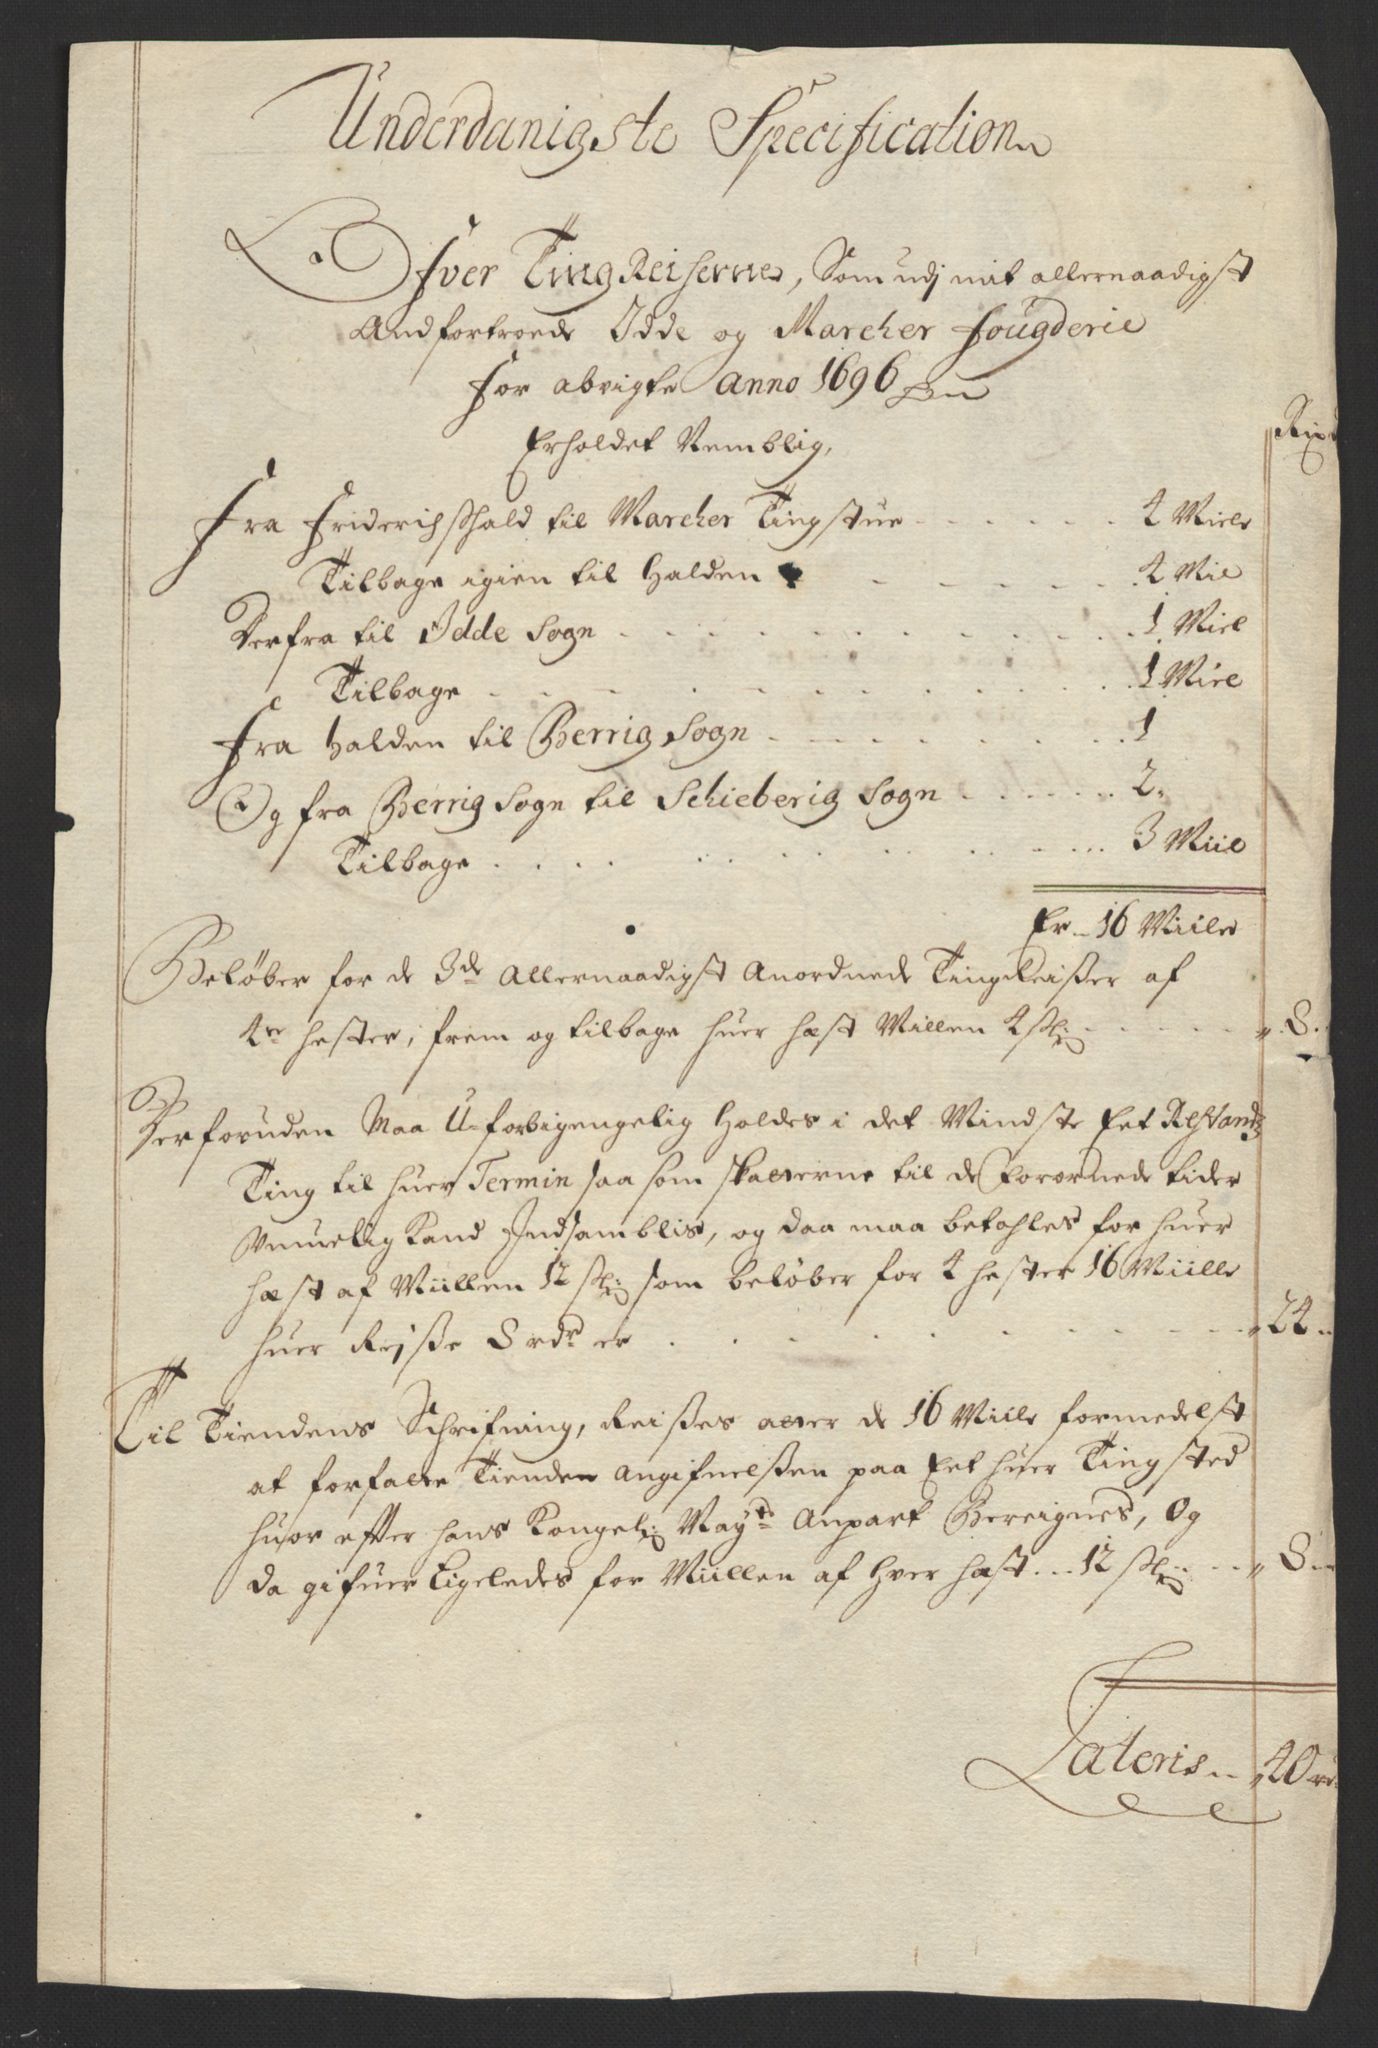 Underdanigste Specification
Ofver Ting Reiserne, Som udj mit allernaadigst
Andfortroede Idde og Marcher fougderie
for abvigte Anno 1696
Erholdet Nemblig,
Rixd
Fra Friderichshald til Marcher Tingstue - - - - - - 4 Miele
Tilbage igien til Halden - - - - - - 4 Mil
Derfra til Idde Sogn - - - - - - 1 Miel
Tilbage - - - - - - 1 Miel
Fra Halden til Berrig Sogn - - - - - - 1
Og fra Berrig Sogn til Schieberig Sogn - - - - - - 2.
Tilbage - - - - - - 3 Miil
Er - 16 Miile
Beløber for de 3de Allernaadigst Anordnede Tingreisser af
4re hester, frem og tilbage huer hæst Millen 4 sk: - - - - - „ 8.
Derforuden Maa U-forbigengelig Holdes i det Mindste Eet Restandz
Ting til huer Termin saa som skatterne til de forordnede tider
Vmuelig Kand Indsamblis, og daa maa betahles for huer
hæst af Miillen 12 sk: som beløber for 4 hester 16 Miille
huer Rejsse 8 rdr er - - - - - - „ 24 -
Til Tiendens Schrifning, Reisses atter de 16 Miile formedelst
at forfatte Tienden Angifuelssen paa Eet huer Tingsted
huor efter hans Kongel: Mayts Anpart Bereignes, Og
da gifuer ligeledes for Miillen af hver hæst - - 12 sk: - - - „ 8 -
Lateris - - „ 40 rd